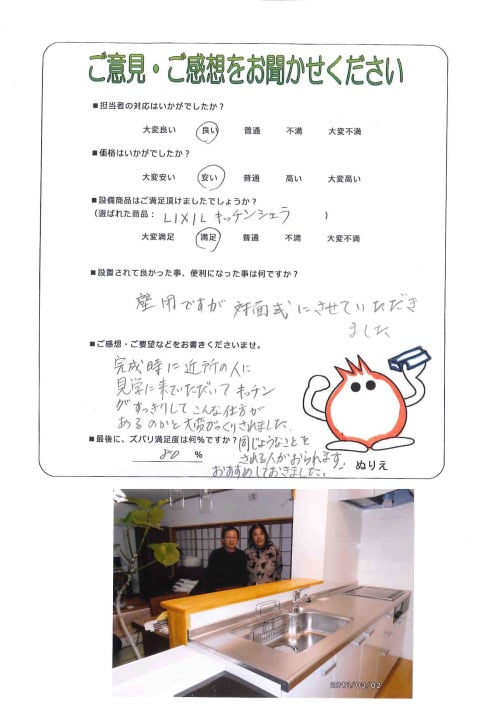 ご意見・ご感想をお聞かせください
■担当者の対応はいかがでしたか？
大変良い 良い 普通 不満 大変不満
■価格はいかがでしたか？
大変安い 安い 普通 高い 大変高い
■設備商品はご満足頂けましたでしょうか？
（選ばれた商品： LIXIL キッチンシェラ ）
大変満足 満足 普通 不満 大変不満
■設置されて良かった事、便利になった事は何ですか？
壁用ですが 対面式にさせていただき
ました
■ご感想・ご要望などをお書きくださいませ。
完成時に近所の人に
見学に来ていただいてキッチン
がすっきりしてこんな仕方が
あるのかと大変びっくりされました。
■最後に、ズバリ満足度は何%ですか？
80 %
同じようなことを
される人がおられます。
おすすめしておきました。
ぬりえ
2013/03/02